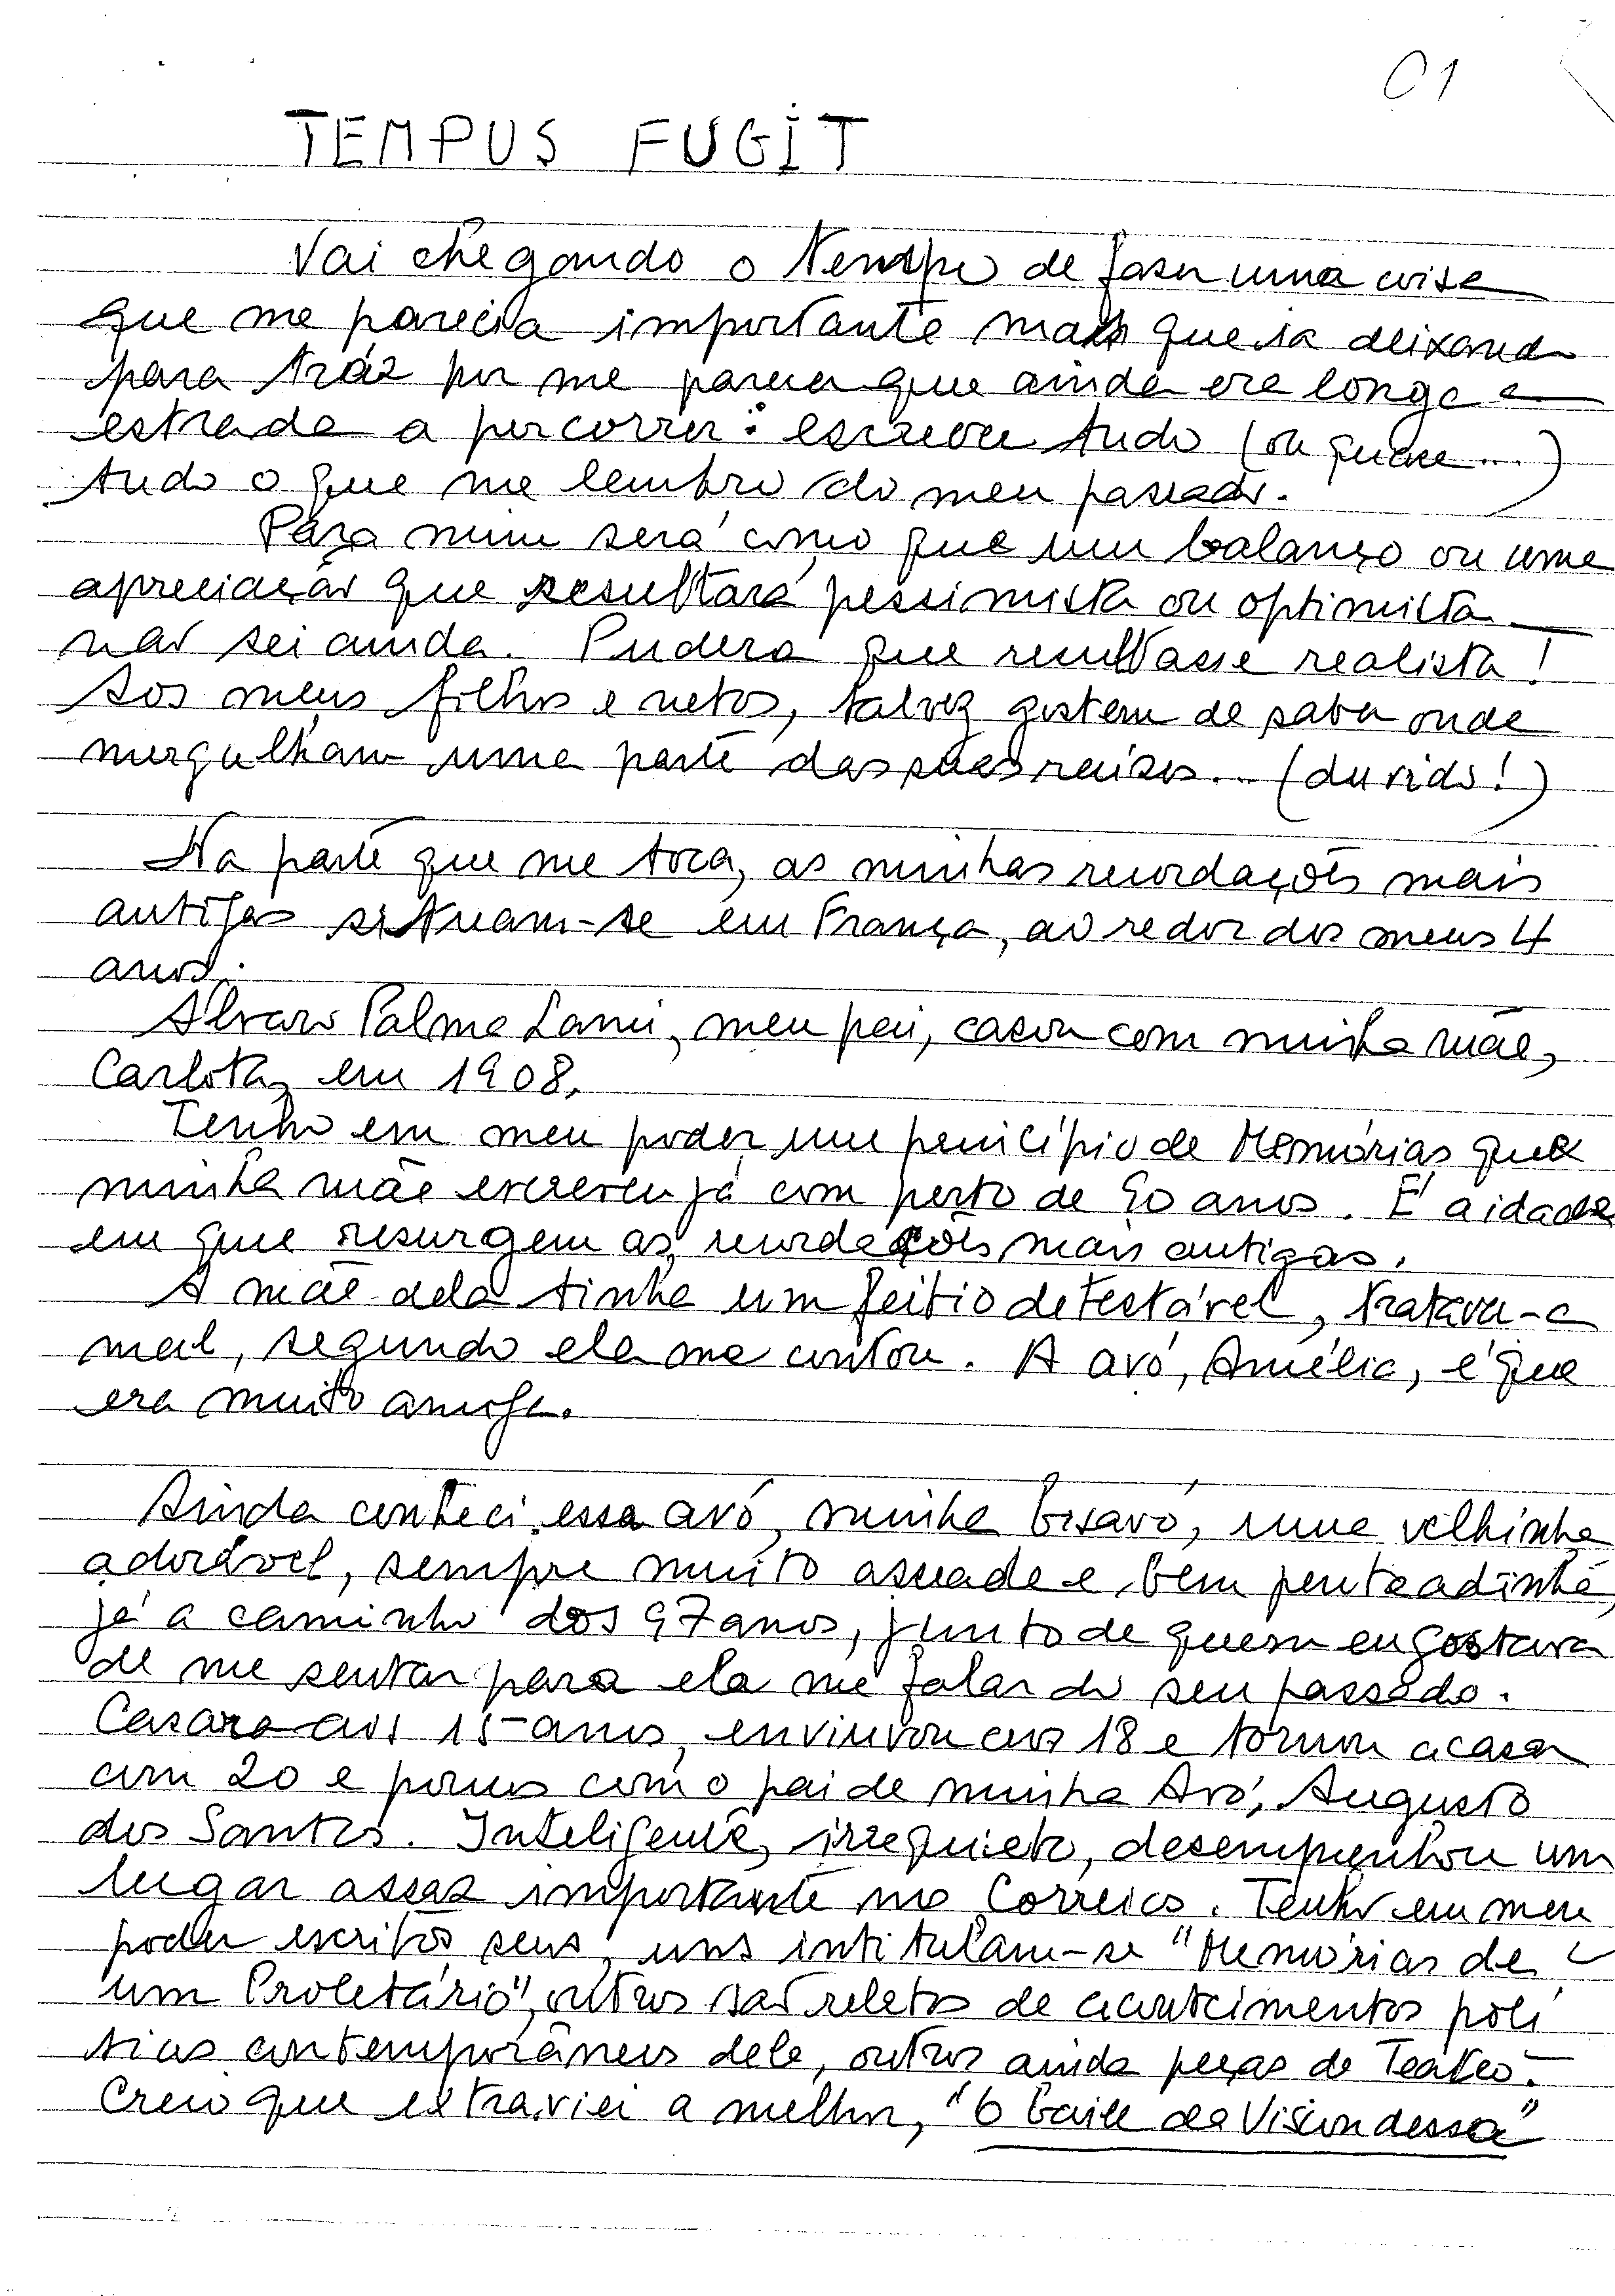 01
TEMPUS FUGIT
Vai chegando o tempo de faser uma coisa
que me parecia importante mas que ia deixando
para tráz por me parecer que ainda era longa a
estrada a percorrer: escrever tudo (ou quase...)
tudo o que me lembro do meu passado.
Para mim será como que um balanço ou uma
apreciação que resultará pessimista ou optimista
não sei ainda. Pudera que resultasse realista!
Aos meus filhos e netos, talvez gostem de saber onde
mergulham uma parte das suas raises... (duvido!)
Na parte que me toca, as minhas recordações mais
antigas situam-se em França, ao redor dos meus 4
anos.
Alvaro Palma Lami, meu pai, casou com minha mãe,
Carlota, em 1908.
Tenho em meu poder um penicípio de Memórias que
minha mãe escreveu já com perto de 90 anos. É a idade
em que resurgem as recordações mais antigas.
A mãe dela tinha um feitio detestável, tratava-a
mal, segundo ela me contou. A avó, Amélia, é que
era muito amiga.
Ainda conheci essa avó, minha bisavó, uma velhinha
adorável, sempre muito asseada e bem penteadinha,
já a caminho dos 97 anos, junto de quem eu gostava
de me sentar para ela me falar do seu passado.
Casara aos 15 anos, enviuvou aos 18 e tornou a casar
com 20 e poucos com o pai de minha Avó, Augusto
dos Santos. Inteligente, irrequieto, desempenhou um
lugar assaz importante no Correios. Tenho em meu
poder escritos seus, uns intitulam-se "Memórias de
um Proletário", outros são relatos de acontecimentos polí
ticos contemporâneos dele, outros ainda peças de Teatro.
Creio que extraviei a melhor, "O baile da Viscondessa"